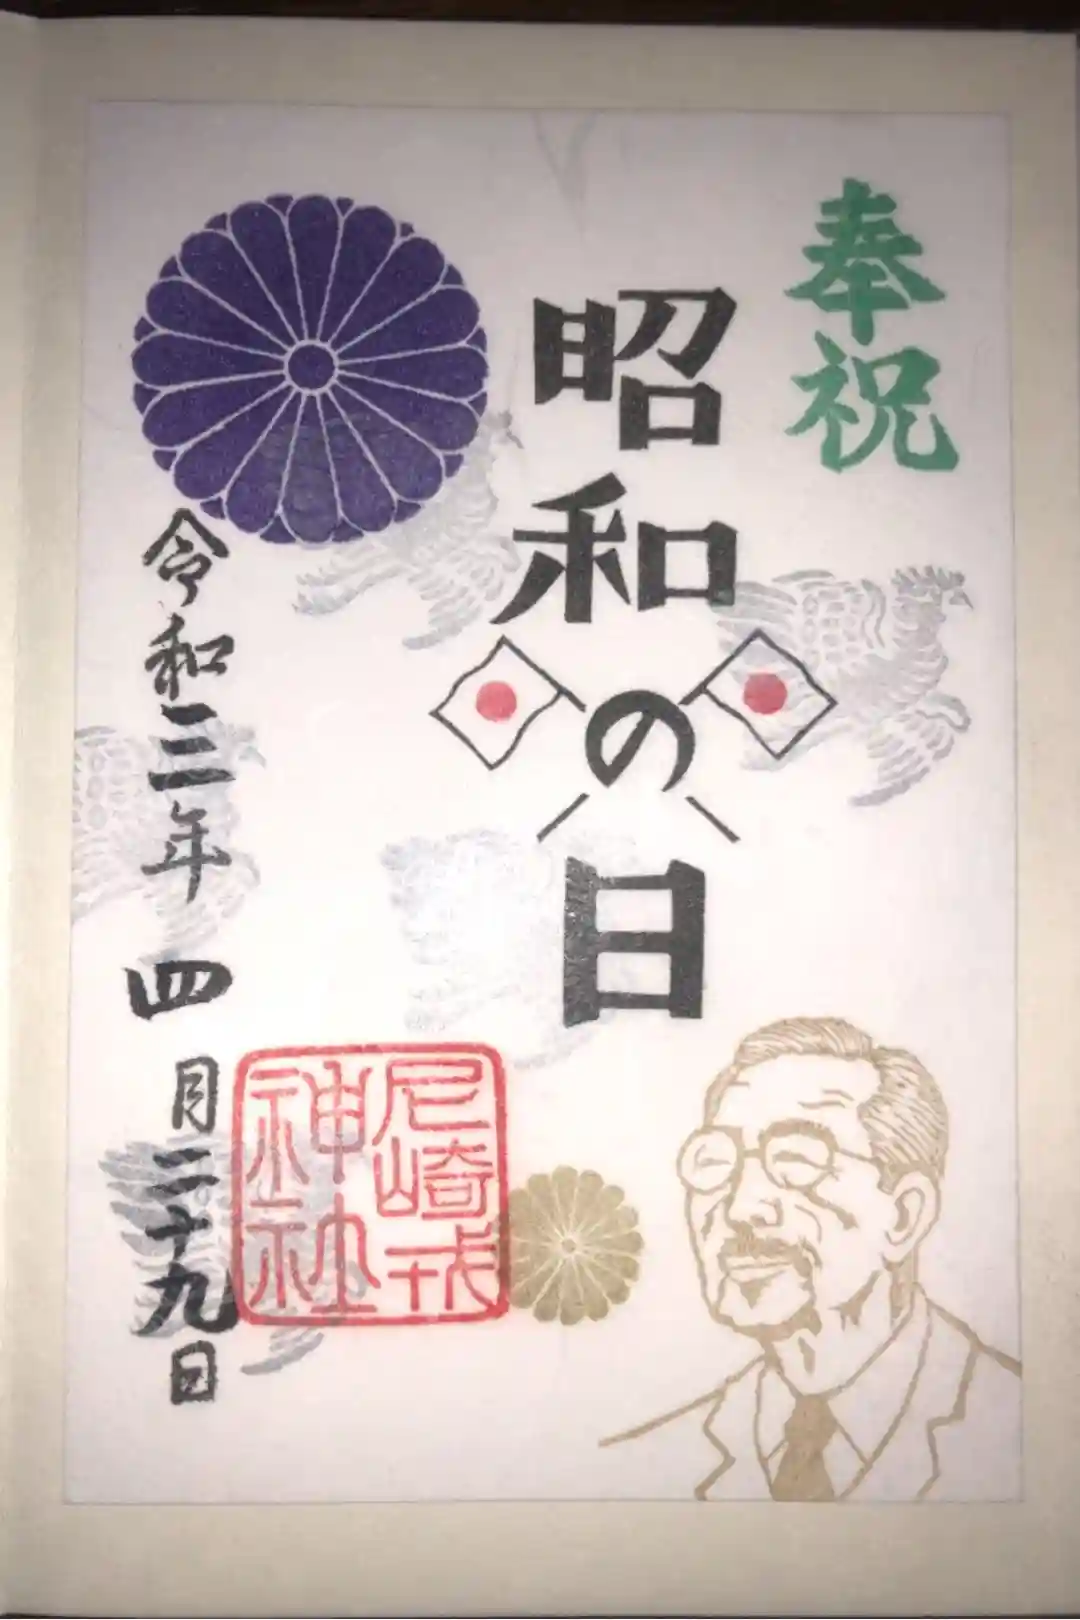 奉祝
昭和の日
令和三年四月二十九日
尼崎戎
神社